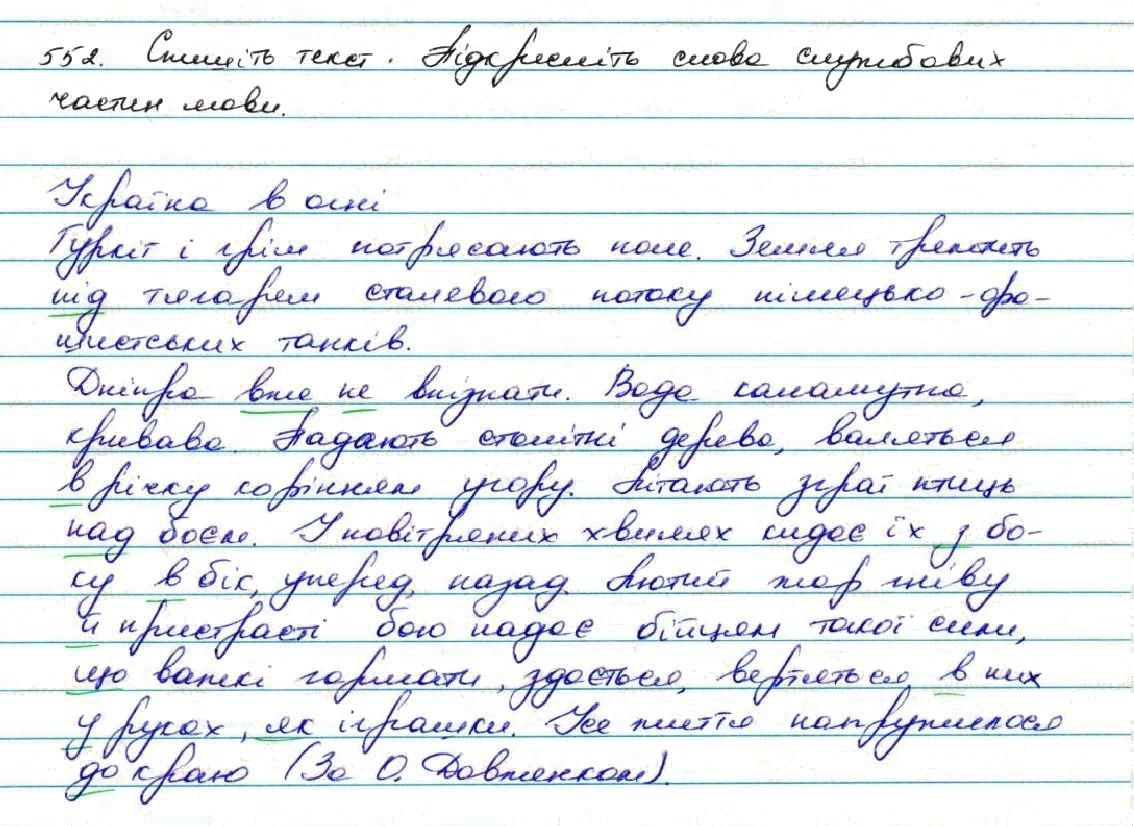 552. Спишіть текст. Підкресліть слова службових
частин мови.
Україна в огні
Гуркіт і грім потрясають поле. Земля тремтить
під тягарем сталевого потоку німецько-фа-
шистських танків.
Дніпра вже не впізнати. Вода каламутна,
кривава. Падають столітні дерева, валяться
в річку корінням угору. Літають зграї птиць
над боєм. У повітряних хвилях кидає їх з бо-
ку в бік, уперед, назад. Лютий жар гніву
й пристрасті бою надає бійцям такої сили,
що важкі гармати, здається, вертяться в них
у руках, як іграшки. Усе життя напружилося
до краю (За О. Довженком).